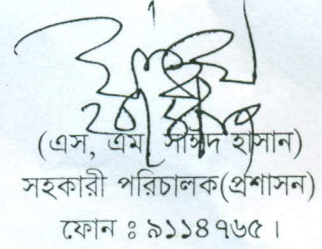 (এস, এম, সাঈদ হাসান)
সহকারী পরিচালক(প্রশাসন)
ফোন ঃ ৯১১৪৭৬৫ ।